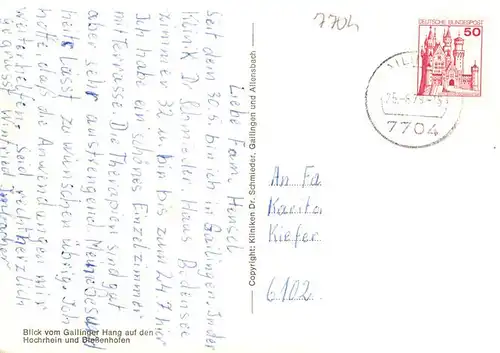 7704
DEUTSCHE BUNDESPOST
50
7704
Liebe Fam. Hensel
Seit dem 30.5 bin ich in Gailingen. In der
Klinik D Schmieder Haus Bodensee
Zimmer 32 u. bin bis zum 24.7 hier
Ich habe ein schönes Einzelzimmer
mit Terrasse. Die Therapien sind gut
aber sehr anstrengend. Meine Gesund
heit Lässt zu wünschen übrig. Ich
hoffe daß die Anwendungen mir
weiterhelfen. Seid recht herzlich
gegrüsst Winfried
An Fa
Karita
Kiefer
6102
Copyright: Kliniken Dr. Schmieder, Gailingen und Allensbach
Blick vom Gailinger Hang auf den
Hochrhein und Dießenhofen